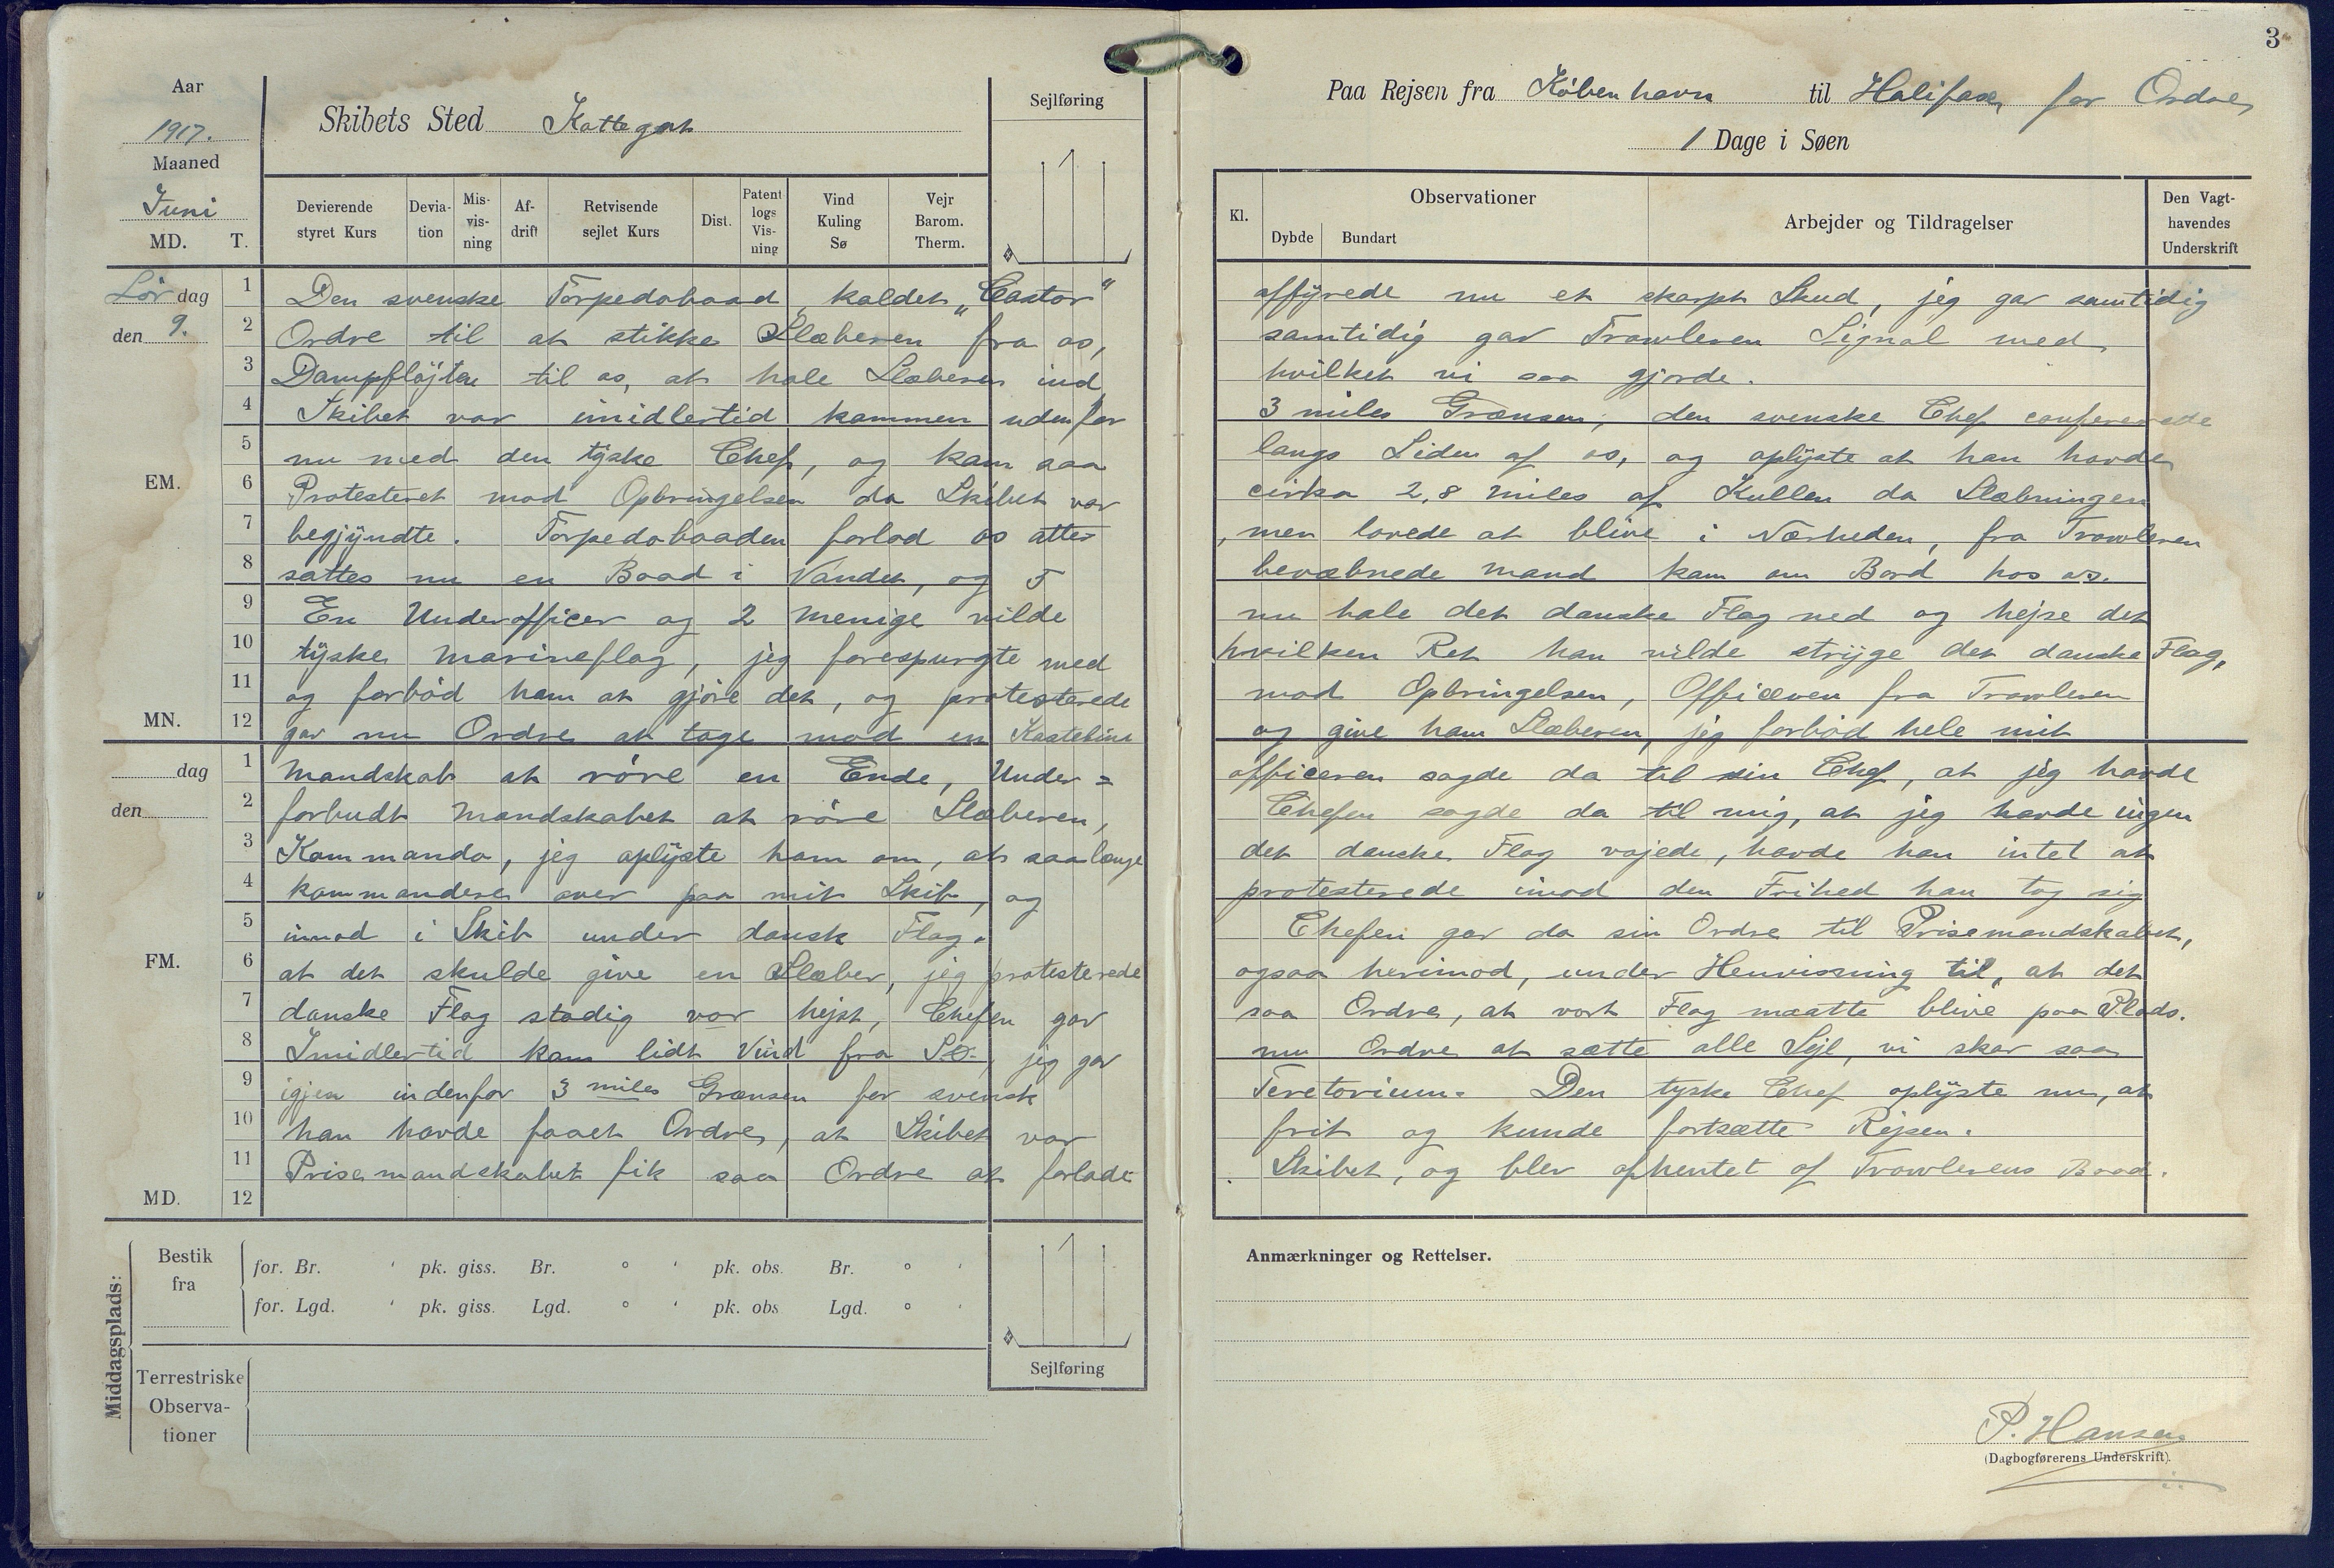 3
Aar
1917.
Maaned
Juni
MD. T.
Skibets Sted Kattegat
Sejlføring
Devierende styret Kurs
Devia-tion
Mis-vis-ning
Af-drift
Retvisende sejlet Kurs
Dist.
Patent logs Vis-ning
Vind Kuling Sø
Vejr Barom. Therm.
Paa Rejsen fra København til Halifax for Ordre
1 Dage i Søen
Kl.
Observationer
Dybde
Bundart
Arbejder og Tildragelser
Den Vagt-havendes Underskrift
Lördag
den 9.
EM.
MN.
dag
den
FM.
MD.
1 Den svenske Torpedobaad, kaldet „Castor“ affyrede nu et skarpt Skud, jeg gav samtidig
2 Ordre til at stikke Slæberen fra os, samtidig gav Trawleren Signal med
3 Dampfløjten til os, at hale Slæberen ind, hvilket vi saa gjorde.
4 Skibet var imidlertid kommen udenfor 3 miles Grænsen, den svenske Chef confererede
5 nu med den tyske Chef, og kam saa langs Siden af os, og oplyste at han havde
6 Protesteret mod Opbringelsen da Skibet var cirka 2,8 miles af Kullen da Slæbningen
7 begjyndte. Torpedobaaden forlod os atter, men lovede at blive i Nærheden, fra Trawleren
8 sattes nu en Baad i Vandet, og 5 bevæbnede mand kam om Bord hos os.
9 En Underofficer og 2 menige vilde nu hale det danske Flag ned og hejse det
10 tyske marineflag, jeg forespurgte med hvilken Ret han vilde stryge det danske Flag,
11 og forbød ham at gjøre det, og protesterede mod Opbringelsen, Officeren fra Trawleren
12 gav nu Ordre at tage mod en Kasteline og give ham Slæberen, jeg forbød hele mit
1 mandskab at røre en Ende, Under= officeren sagde da til sin Chef, at jeg havde
2 forbudt mandskabet at røre Slæberen, Chefen sagde da til mig, at jeg havde ingen
3 Kommando, jeg oplyste ham om, at saalænge det danske Flag vajede, havde han intet at
4 kommandere over paa mit Skib, og protesterede imod den Frihed han tog sig
5 imod i Skib under dansk Flag. Chefen gav da sin Ordre til Prisemandskabet,
6 at det skulde give en Slæber, jeg protesterede ogsaa herimod, under Henvisning til, at det
7 danske Flag stadig var hejst, Chefen gav saa Ordre, at vort Flag maatte blive paa Plads.
8 Imidlertid kam lidt Vind fra SO-, jeg gav nu Ordre at sætte alle Sejl, vi skar saa
9 igjen indenfor 3 miles Grænsen for svensk Teretorium. Den tyske Chef oplyste nu, at
10 han havde faaet Ordre, at Skibet var frit og kunde fortsætte Rejsen.
11 Prisemandskabet fik saa Ordre at forlade Skibet, og blev afhentet af Trawlerens Baad.
12
Middagsplads:
Bestik fra
for. Br. ' pk. giss. Br. ° ' pk. obs. Br. ° '
for. Lgd. ' pk. giss. Lgd. ° ' pk. obs Lgd. ° '
Terrestriske Observa-tioner
Sejlføring
Anmærkninger og Rettelser.
P. Hansen
(Dagbogførerens Underskrift).